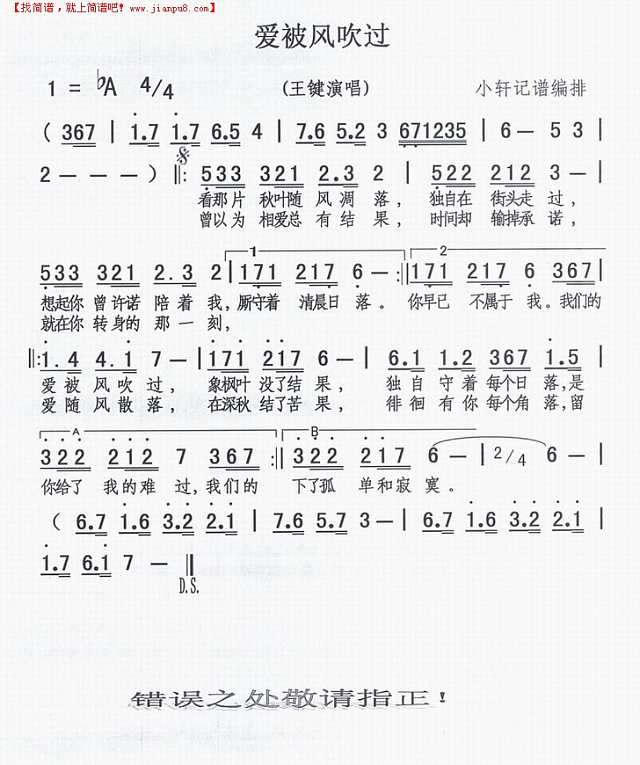 【找简谱，就上简谱吧! www.jianpu8.com】
爱被风吹过
1 = ♭A 4/4 (王键演唱) 小轩记谱编排
( 367 | 1.7 1.7 6.5 4 | 7.6 5.2 3 671235 | 6 – 5 3 |
2 – – – ) ‖: 533 321 2.3 2 | 522 212 3 – |
看那片 秋叶随 风 凋 落， 独自在 街头走 过，
曾以为 相爱总 有 结 果， 时间却 输掉承 诺，
1 2
533 321 2.3 2 | 171 217 6 – :‖ 171 217 6 367 |
想起你 曾许诺 陪 着 我，厮守着 清晨日 落。 你早已 不属于 我。我们的
就在你 转身的 那 一 刻，
‖: 1.4 4.1 7 – | 171 217 6 – | 6.1 1.2 367 1.5 |
爱 被 风 吹 过， 象枫叶 没了结 果， 独 自 守 着 每个日 落，是
爱 随 风 散 落， 在深秋 结了苦 果， 徘 徊 有 你 每个角 落，留
A B
322 212 7 367 :‖ 322 217 6 – | 2/4 6 – |
你给了 我的难 过，我们的 下了孤 单和寂 寞。
( 6.7 1.6 3.2 2.1 | 7.6 5.7 3 – | 6.7 1.6 3.2 2.1 |
1.7 6.1 7 – ‖
D.S.
错误之处敬请指正！